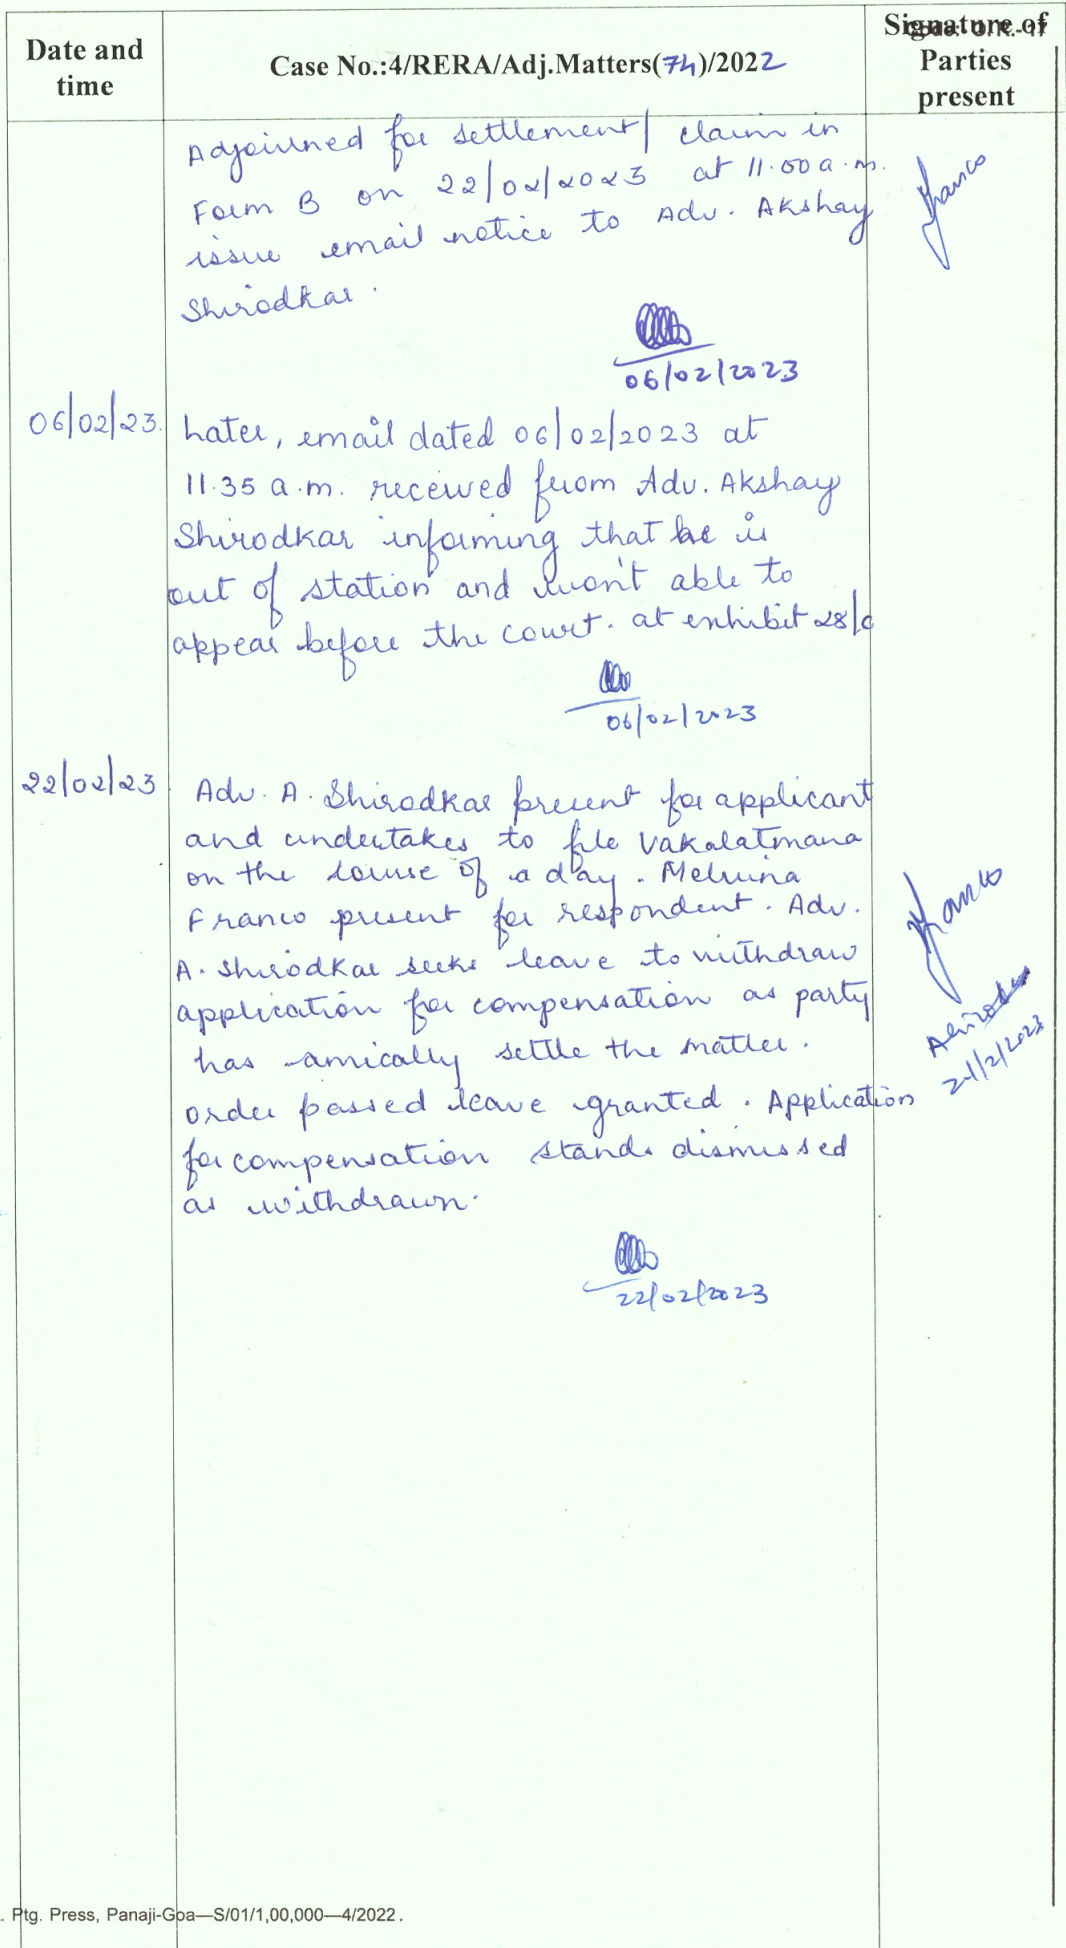 Date and
time
Case No.:4/RERA/Adj.Matters(74)/2022
Signature of
Parties
present
Adjourned for settlement/ claim in
Form B on 22/02/2023 at 11.00 a.m.
issue email notice to Adv. Akshay
Shirodkar.
Franco
06/02/2023
06/02/23.
Later, email dated 06/02/2023 at
11.35 a.m. received from Adv. Akshay
Shirodkar informing that he is
out of station and won't able to
appear before the court. at exhibit 28/c
06/02/2023
22/02/23
Adv. A. Shirodkar present for applicant
and undertakes to file Vakalatmana
on the course of a day. Melvina
Franco present for respondent. Adv.
A. Shirodkar seeks leave to withdraw
application for compensation as party
has amically settle the matter.
order passed leave granted. Application
for compensation stands dismissed
as withdrawn.
Franco
22/02/2023
. Ptg. Press, Panaji-Goa—S/01/1,00,000—4/2022.